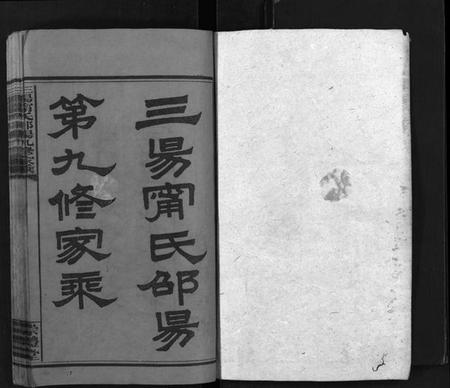 三昜甯氏邵昜
第九修家乘